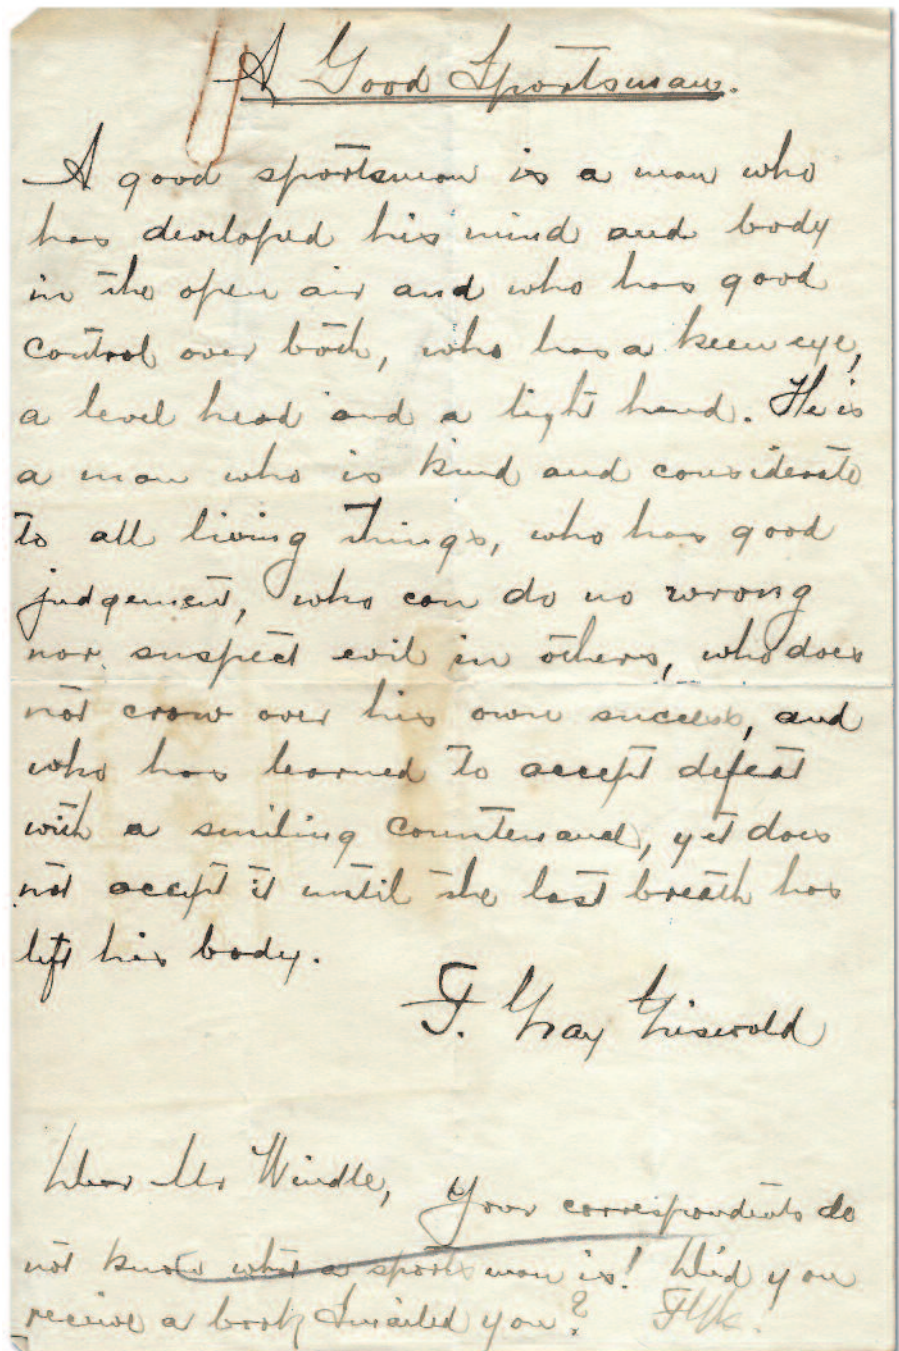 A Good Sportsman.
A good sportsman is a man who
has developed his mind and body
in the open air and who has good
control over both, who has a keen eye,
a level head and a light hand. He is
a man who is kind and considerate
to all living things, who has good
judgement, who can do no wrong
nor suspect evil in others, who does
not crow over his own success, and
who has learned to accept defeat
with a smiling countenance, yet does
not accept it until the last breath has
left his body.
F. Gray Griswold
Dear Mr Windle, Your correspondents do
not know what a sportsman is! Did you
receive a book I mailed you?